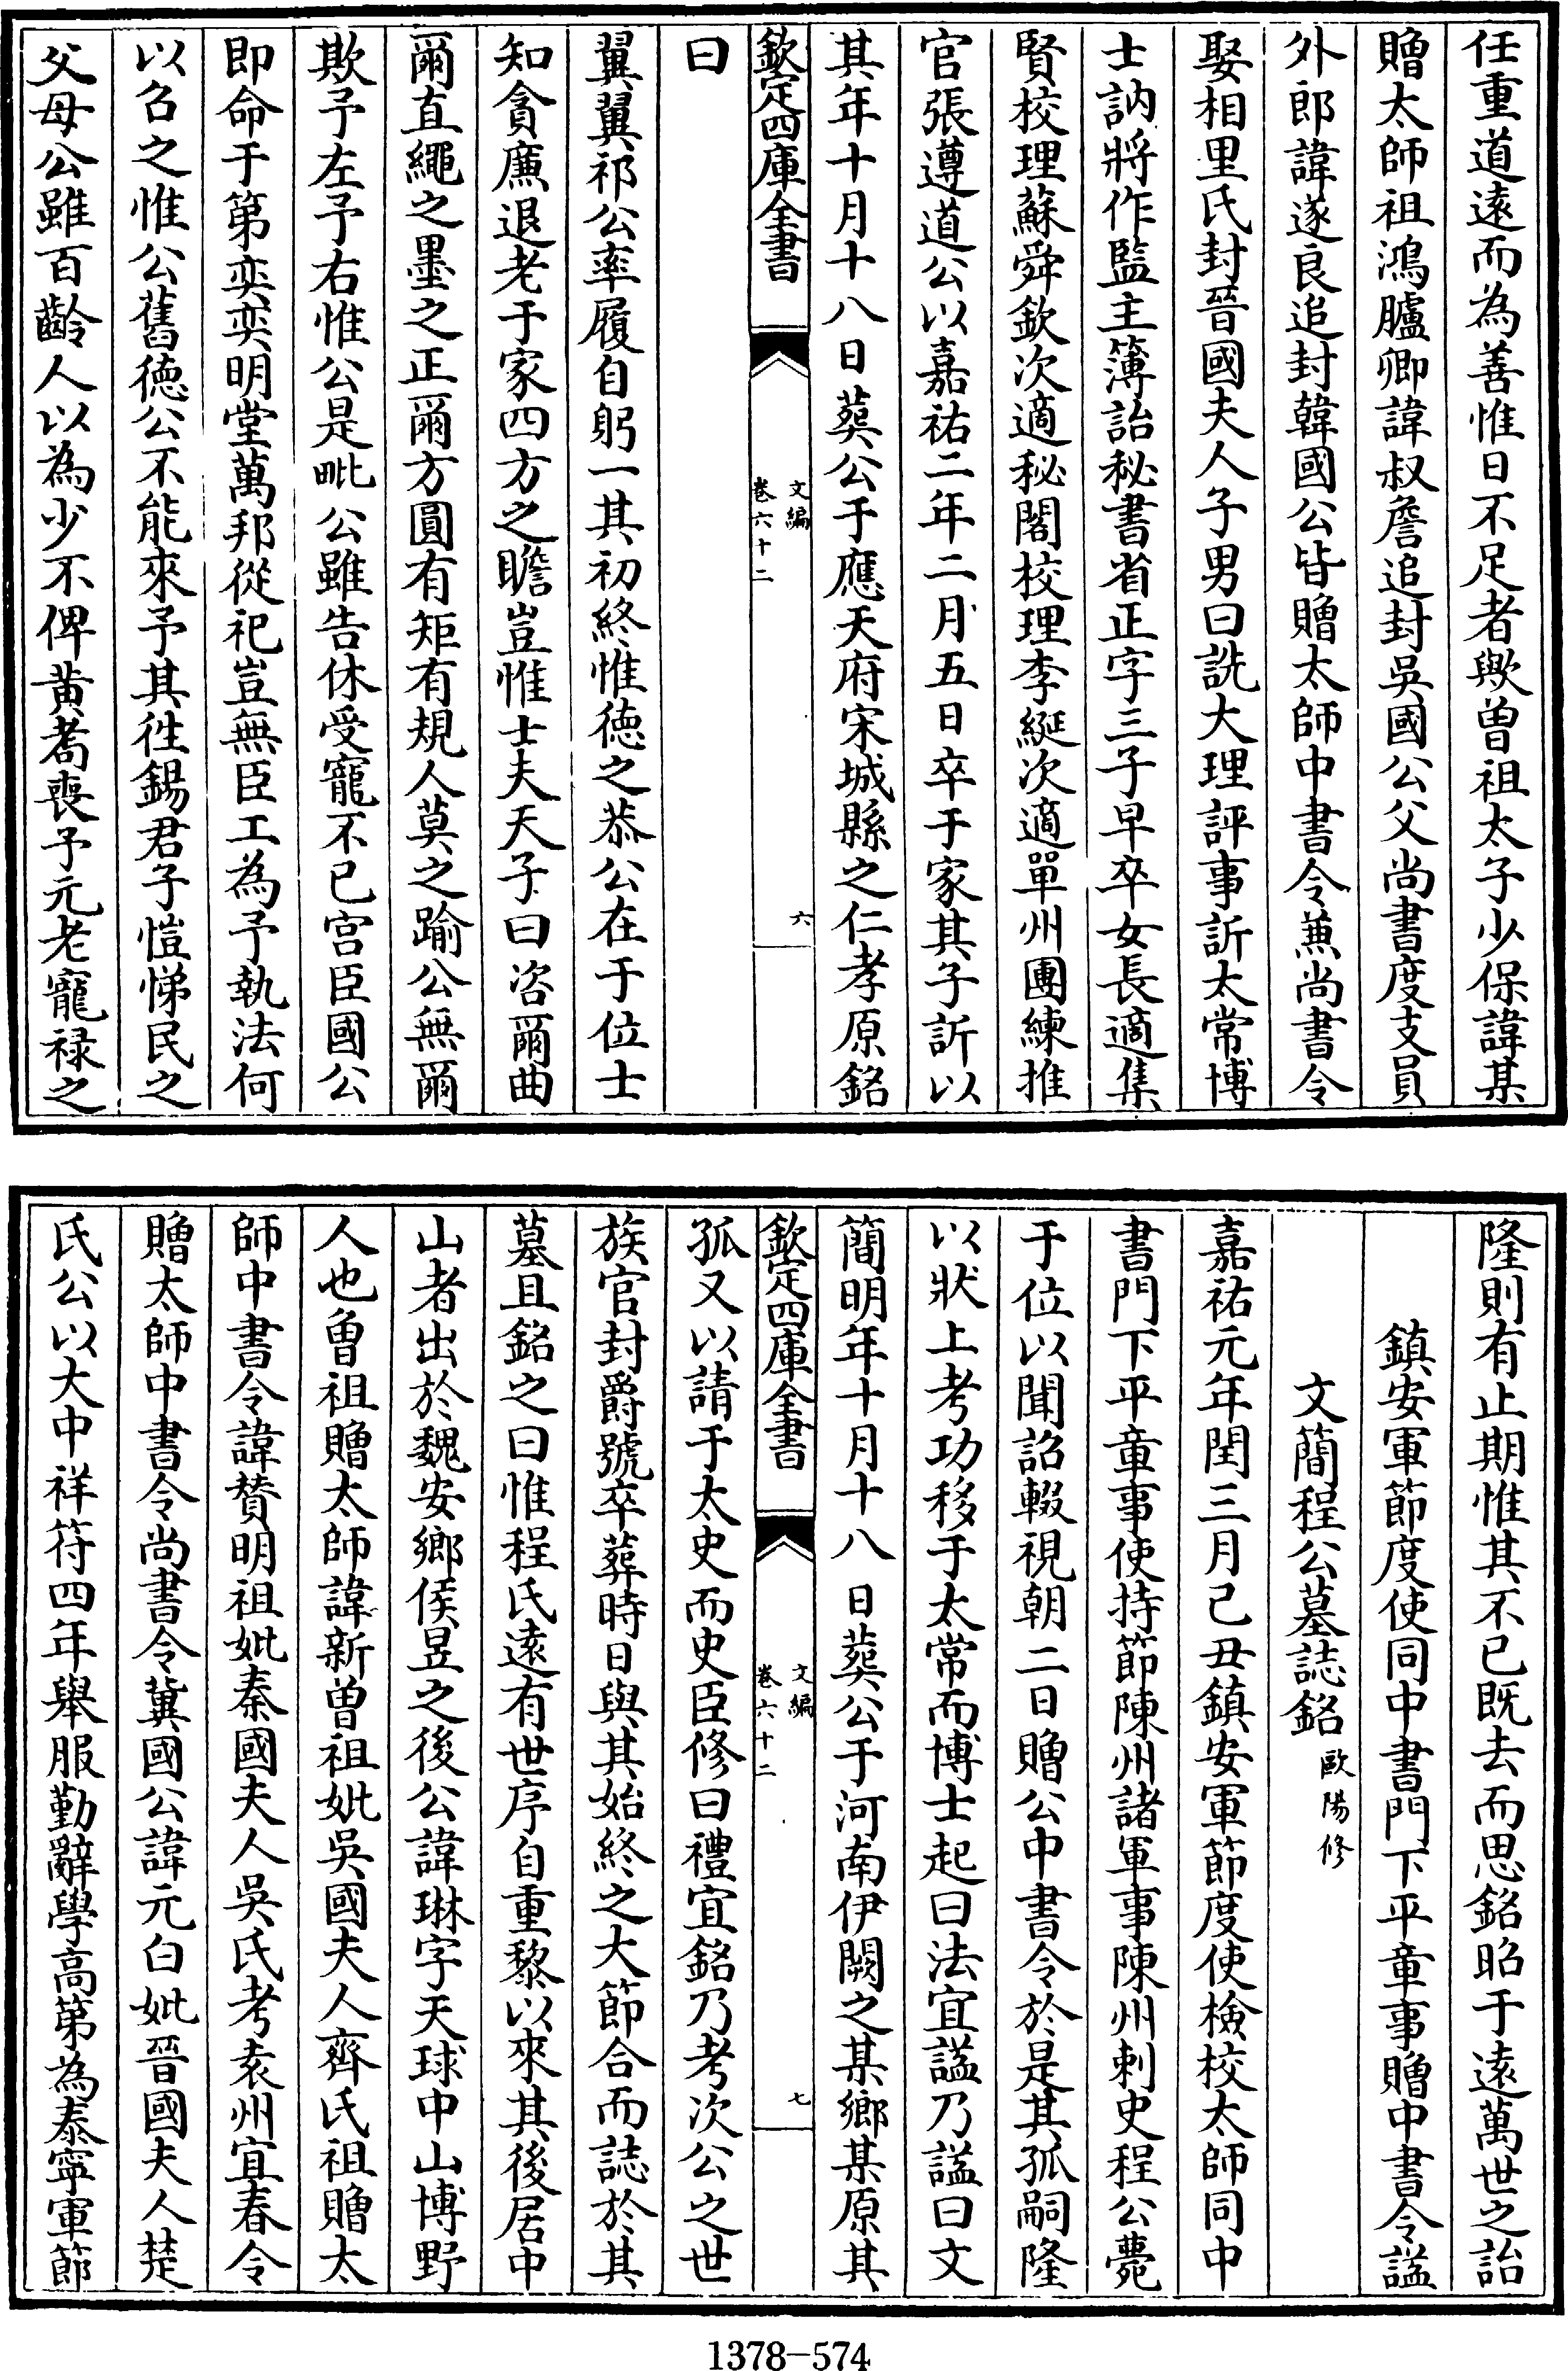 任重道遠而為善惟日不足者歟曾祖太子少保諱某
贈太師祖鴻臚卿諱叔詹追封吳國公父尚書度支員
外郎諱遂良追封韓國公皆贈太師中書令兼尚書令
娶相里氏封晉國夫人子男曰詵大理評事訢太常博
士訥將作監主簿詒秘書省正字三子早卒女長適集
賢校理蘇舜欽次適秘閣校理李綖次適單州團練推
官張遵道公以嘉祐二年二月五日卒于家其子訢以
其年十月十八日葬公于應天府宋城縣之仁孝原銘
欽定四庫全書
文編
卷六十二
六
曰
翼翼祁公率履自躬一其初終惟徳之恭公在于位士
知貪廉退老于家四方之瞻豈惟士夫天子曰咨爾曲
爾直繩之墨之正爾方圓有矩有規人莫之踰公無爾
欺予左予右惟公是毗公雖告休受寵不已宫臣國公
即命于第奕奕明堂萬邦從祀豈無臣工為予執法何
以召之惟公舊徳公不能來予其徃錫君子愷悌民之
父母公雖百齡人以為少不俾黄耈喪予元老寵禄之
隆則有止期惟其不已既去而思銘昭于逺萬世之詒
鎮安軍節度使同中書門下平章事贈中書令諡
文簡程公墓誌銘歐陽修
嘉祐元年閏三月己丑鎮安軍節度使檢校太師同中
書門下平章事使持節陳州諸軍事陳州刺史程公薨
于位以聞詔輟視朝二日贈公中書令於是其孤嗣隆
以狀上考功移于太常而博士起曰法宜諡乃諡曰文
簡明年十月十八日葬公于河南伊闕之某鄉某原其
欽定四庫全書
文編
卷六十二
七
孤又以請于太史而史臣修曰禮宜銘乃考次公之世
族官封爵號卒葬時日與其始終之大節合而誌於其
墓且銘之曰惟程氏逺有世序自重黎以來其後居中
山者出於魏安鄉侯昱之後公諱琳字天球中山博野
人也曾祖贈太師諱新曾祖妣吳國夫人齊氏祖贈太
師中書令諱賛明祖妣秦國夫人吳氏考袁州宜春令
贈太師中書令尚書令冀國公諱元白妣晉國夫人楚
氏公以大中祥符四年舉服勤辭學髙第為泰寧軍節
1378-574